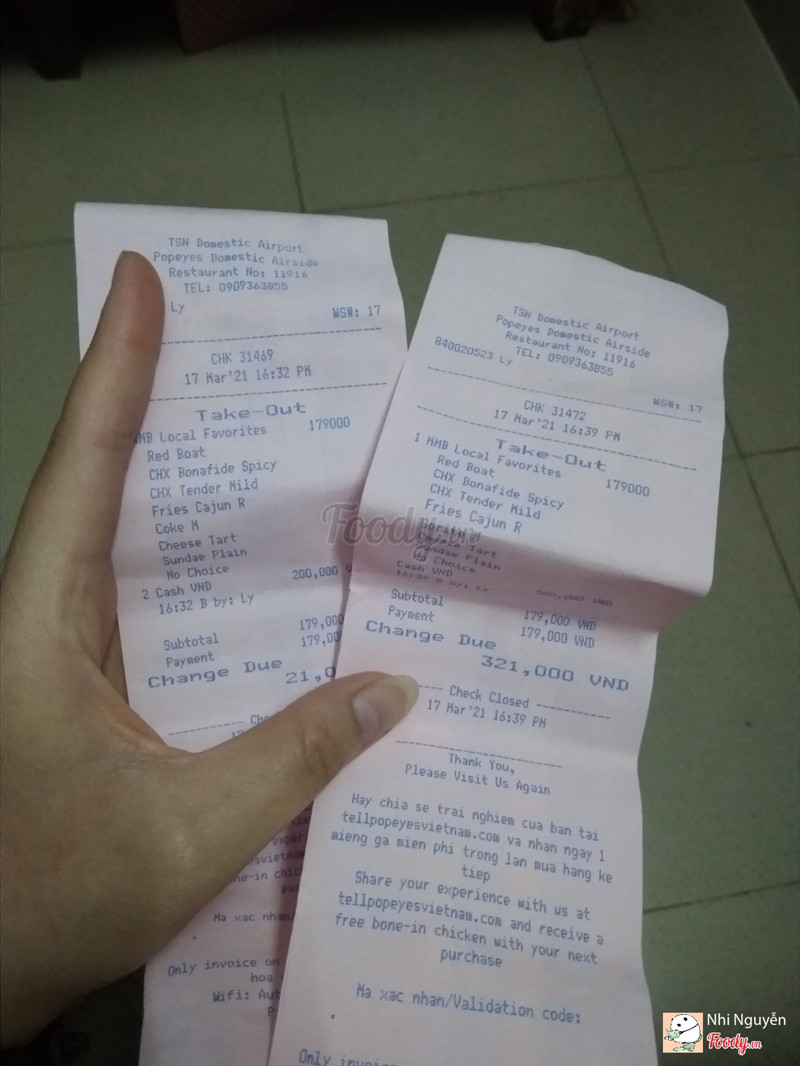 TSN Domestic Airport
Popeyes Domestic Airside
Restaurant No: 11916
TEL: 0909363855
Ly
WS#: 17
CHK 31469
17 Mar'21 16:32 PM
Take-Out
MB Local Favorites 179000
Red Boat
CHX Bonafide Spicy
CHX Tender Mild
Fries Cajun R
Coke M
Cheese Tart
Sundae Plain
No Choice
2 Cash VND 200,000 V
16:32 B by: Ly
Subtotal 179,000
Payment 179,00
Change Due
21,0
esvietnam
ne-in chic
pur
Ma xac nhan/
Only invoice on
hoa
Wifi: Aut
TSN Domestic Airport
Popeyes Domestic Airside
Restaurant No: 11916
TEL: 0909363855
840020523 Ly
WS#: 17
CHK 31472
17 Mar'21 16:39 PM
Take-Out
1 MMB Local Favorites 179000
Red Boat
CHX Bonafide Spicy
CHX Tender Mild
Fries Cajun R
Cheese Tart
Sundae Plain
No Choice
Cash VND 500,000 VND
16:39 B by: Ly
Subtotal 179,000 VND
Payment 179,000 VND
Change Due
321,000 VND
Check Closed
17 Mar'21 16:39 PM
Thank You,
Please Visit Us Again
Hay chia se trai nghiem cua ban tai
tellpopeyesvietnam.com va nhan ngay 1
mieng ga mien phi trong lan mua hang ke
tiep
Share your experience with us at
tellpopeyesvietnam.com and receive a
free bone-in chicken with your next
purchase
Ma xac nhan/Validation code:
Only invoi
Foody.vn
Nhi Nguyễn
Foody.vn